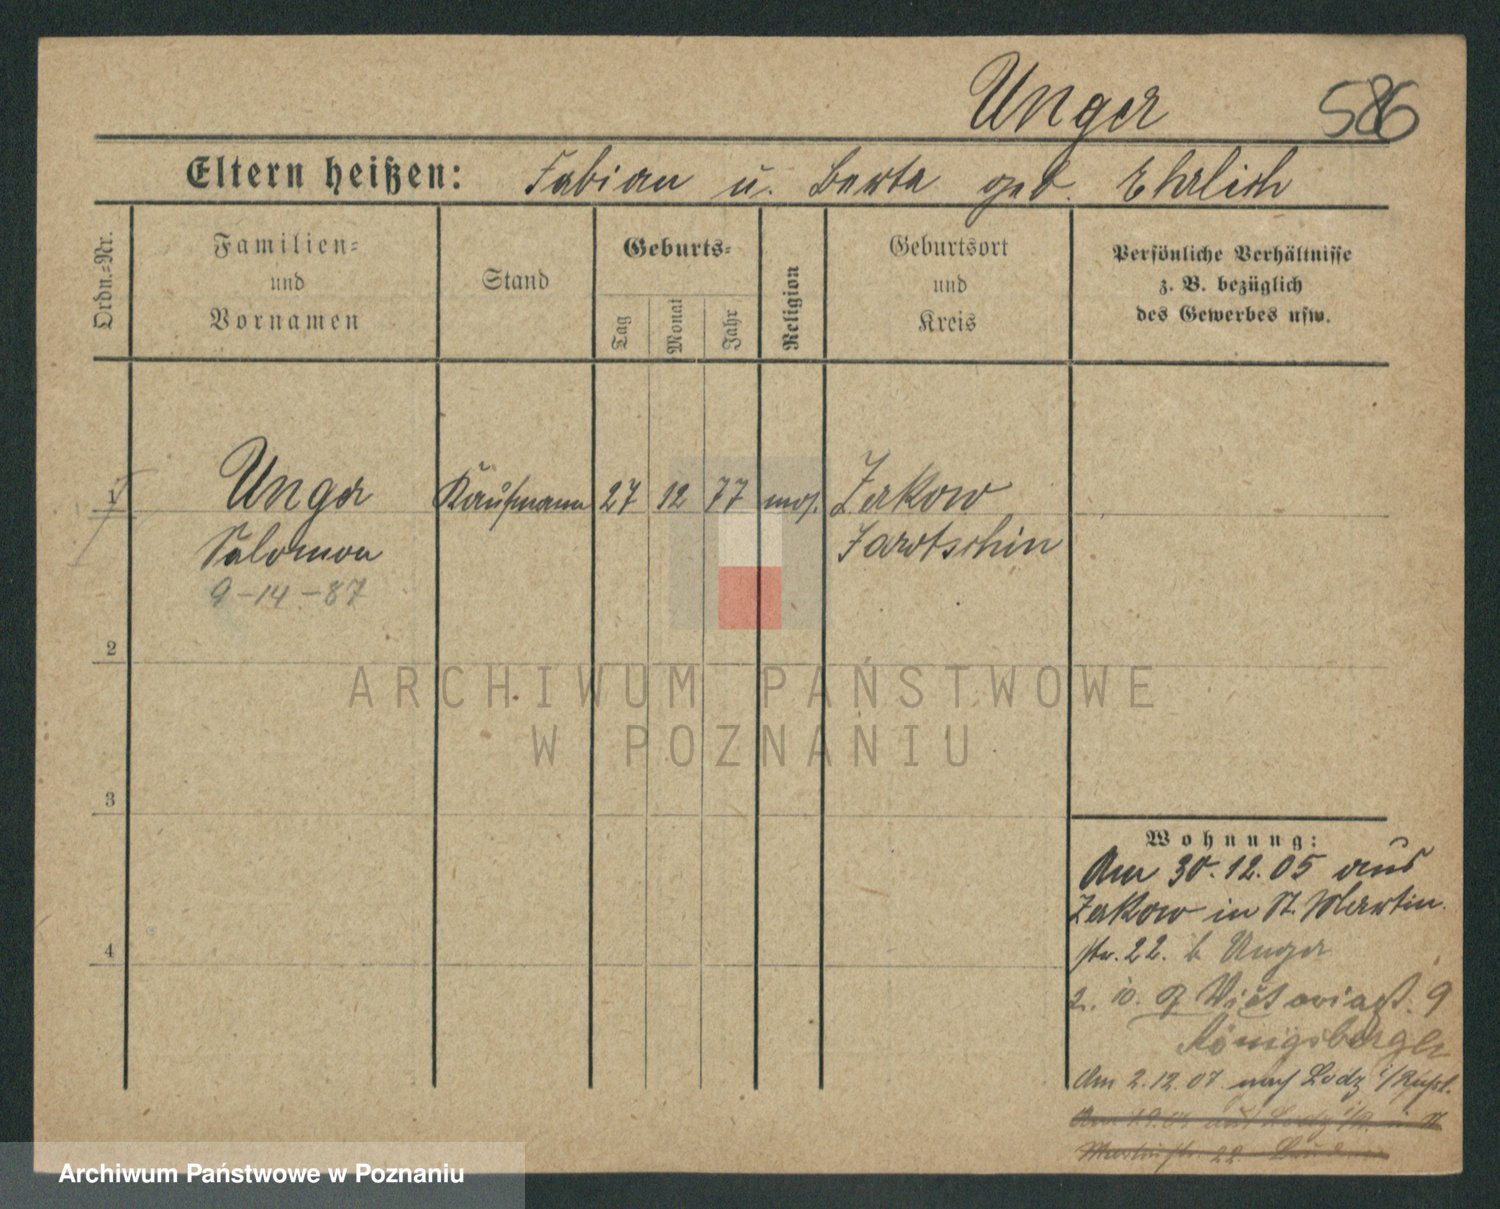 Unger 586
Eltern heißen: Fabian u. Berta geb. Ehrlich
Ordn.-Nr.
Familien-
und
Vornamen
Stand
Geburts-
Tag
Monat
Jahr
Religion
Geburtsort
und
Kreis
Persönliche Verhältnisse
z. B. bezüglich
des Gewerbes usw.
1 Unger Kaufmann 27 12 77 mos. Zerkow
Salomon Jarotschin
9-14-87
2
ARCHIWUM PAŃSTWOWE
W POZNANIU
3
Wohnung:
Am 30.12.05 aus
Zerkow in St. Martin
str. 22. b. Unger
4
2. 10. Victoriastr. 9
Königsberger
Am 2.12.07 nach Lodz i/Rußl.
22.
Archiwum Państwowe w Poznaniu